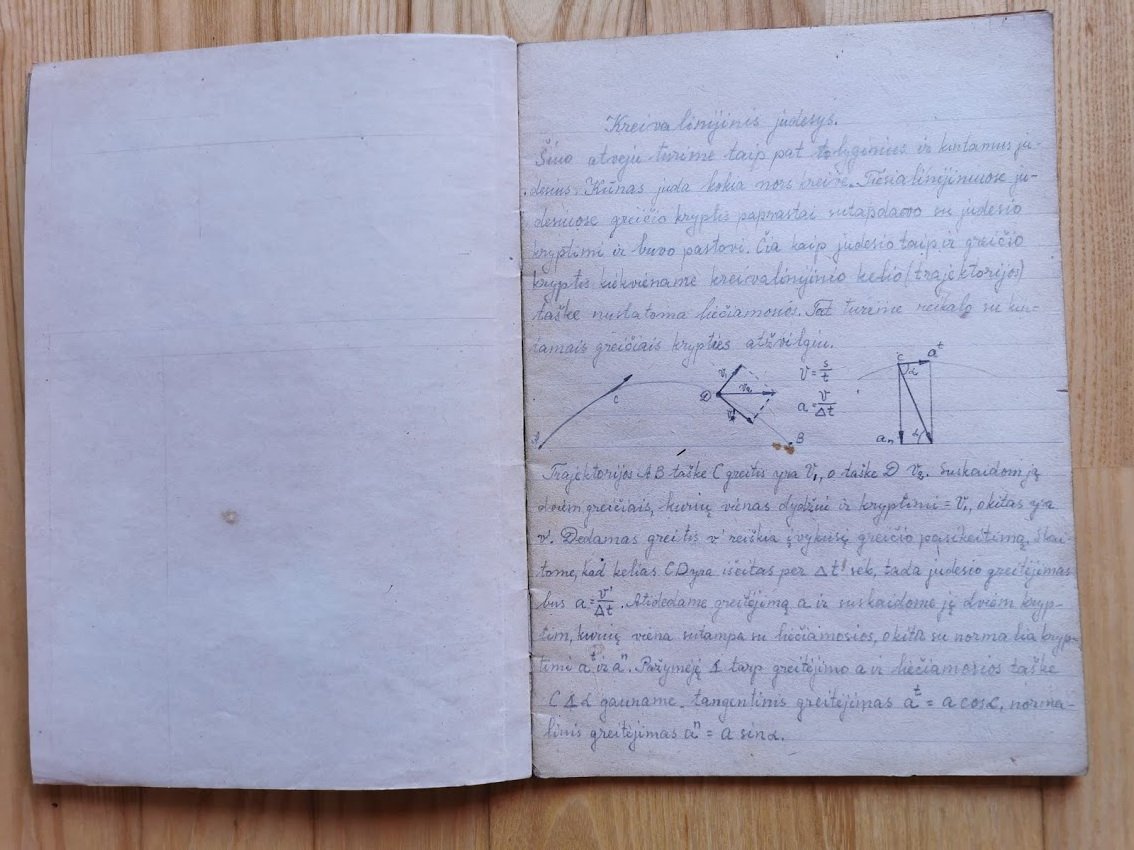 Kreivalinijinis judesys.
Šiuo atveju turime taip pat tolyginius ir kintamus ju-
desius. Kūnas juda kokia nors kreive. Tiesialinijiniuose ju-
desiuose greičio kryptis paprastai sutapdavo su judesio
kryptimi ir buvo pastovi. Čia kaip judesio taip ir greičio
kryptis kiekviename kreivalinijinio kelio (trajektorijos)
taške nustatoma liečiamosios. Tat turime reikalą su kin-
tamais greičiais krypties atžvilgiu.
A C D v₁ v₂ v' B
v = s/t
a = v/Δt
C aᵗ α aₙ α
Trajektorijos AB taške C greitis yra V₁, o taške D V₂. Suskaidom jį
dviem greičiais, kurių vienas dydžiu ir kryptimi = V₁, o kitas yra
v'. Dedamas greitis v' reiškia įvykusį greičio pasikeitimą. Skai-
tome, kad kelias CD yra išeitas per Δt' sek, tada judesio greitėjimas
bus a = v'/Δt. Atidedame greitėjimą a ir suskaidome jį dviem kryp-
tim, kurių viena sutampa su liečiamosios, o kita su normalia kryp-
timi aᵗ ir aⁿ. Pažymėję ∡ tarp greitėjimo a ir liečiamosios taške
C ∡α gauname, tangentinis greitėjimas aᵗ = a cosα, norma-
linis greitėjimas aⁿ = a sinα.